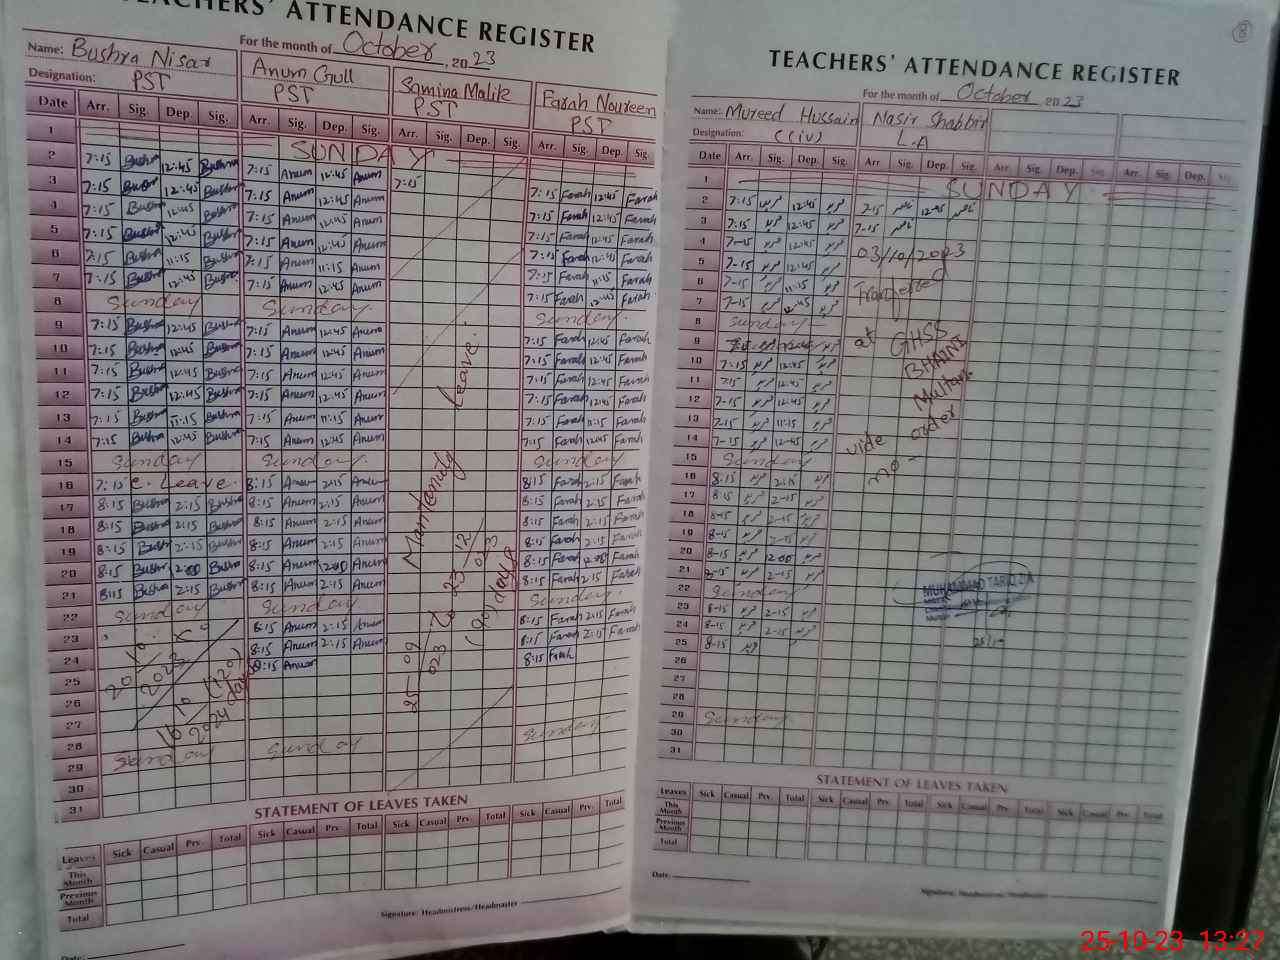 TEACHERS' ATTENDANCE REGISTER
For the month of October, 2023
Name: Bushra Nisar Anum Gull Samina Malik Farah Noureen
Designation: PST PST PST PST
Date Arr. Sig. Dep. Sig. Arr. Sig. Dep. Sig. Arr. Sig. Dep. Sig. Arr. Sig. Dep. Sig.
1 SUNDAY
2 7:15 Bushra 12:45 Bushra 7:15 Anum 12:45 Anum 7:15 7:15 Farah 12:45 Farah
3 7:15 Bushra 12:45 Bushra 7:15 Anum 12:45 Anum 7:15 Farah 12:45 Farah
4 7:15 Bushra 12:45 Bushra 7:15 Anum 12:45 Anum 7:15 Farah 12:45 Farah
5 7:15 Bushra 12:45 Bushra 7:15 Anum 12:45 Anum 7:15 Farah 12:45 Farah
6 7:15 Bushra 11:15 Bushra 7:15 Anum 11:15 Anum 7:15 Farah 11:15 Farah
7 7:15 Bushra 12:45 Bushra 7:15 Anum 12:45 Anum 7:15 Farah 12:45 Farah
8 Sunday Sunday. Sunday.
9 7:15 Bushra 12:45 Bushra 7:15 Anum 12:45 Anum 7:15 Farah 12:45 Farah
10 7:15 Bushra 12:45 Bushra 7:15 Anum 12:45 Anum 7:15 Farah 12:45 Farah
11 7:15 Bushra 12:45 Bushra 7:15 Anum 12:45 Anum 7:15 Farah 12:45 Farah
12 7:15 Bushra 12:45 Bushra 7:15 Anum 12:45 Anum 7:15 Farah 12:45 Farah
13 7:15 Bushra 11:15 Bushra 7:15 Anum 11:15 Anum 7:15 Farah 11:15 Farah
14 7:15 Bushra 12:45 Bushra 7:15 Anum 12:45 Anum 7:15 Farah 12:45 Farah
15 Sunday Sunday. Sunday
16 7:15 C. Leave. 8:15 Anum 2:15 Anum 8:15 Farah 2:15 Farah
17 8:15 Bushra 2:15 Bushra 8:15 Anum 2:15 Anum 8:15 Farah 2:15 Farah
18 8:15 Bushra 2:15 Bushra 8:15 Anum 2:15 Anum 8:15 Farah 2:15 Farah
19 8:15 Bushra 2:15 Bushra 8:15 Anum 2:15 Anum 8:15 Farah 2:15 Farah
20 8:15 Bushra Bushra 8:15 Anum Anum 8:15 Farah Farah
21 8:15 Bushra 2:15 Bushra 8:15 Anum 2:15 Anum 8:15 Farah 2:15 Farah
22 Sunday Sunday Sunday.
23 8:15 Anum 2:15 Anum 8:15 Farah 2:15 Farah
24 8:15 Anum 2:15 Anum 8:15 Farah 2:15 Farah
25 8:15 Anum 8:15 Farah
26
27
28
29 Sunday Sunday Sunday
30
31
20 10 2023
16 10 2024 (120) days
Maintenity Leave.
25-09 023 to 23 12 023
(90) days
STATEMENT OF LEAVES TAKEN
Leaves Sick Casual Prv. Total Sick Casual Prv. Total Sick Casual Prv. Total Sick Casual Prv. Total
This Month
Previous Month
Total
Signature: Headmistress/Headmaster
Date:
8
TEACHERS' ATTENDANCE REGISTER
For the month of October 2023
Name: Mureed Hussain Nasir Shabbir
Designation: C(iv) L.A
Date Arr. Sig. Dep. Sig. Arr Sig. Dep. Sig. Arr. Sig. Dep. Sig. Arr. Sig. Dep. Sig.
1 SUNDAY
2 7:15 12:45 7-15 12-45
3 7:15 12:45 7-15
4 7-15 12:45
5 7-15 12:45
6 7-15 11:15
7 7-15 12:45
8 Sunday
9 12:45
10 7:15 12:45
11 7:15 12:45
12 7-15 12:45
13 7-15 11:15
14 7-15 12-45
15 Sunday
16 8:15 2:15
17 8:15 2-15
18 8-15 2-15
19 8-15 2-15
20 8-15 12:00
21 8-15 2-15
22 Sunday
23 8-15 2-15
24 8-15 2-15
25 8-15
26
27
28
29 Sunday
30
31
03/10/2023
Tranfered
at GHSS
BHAINI
Multan
vide order
no-
MUHAMMAD TARIQ ZIA
25/10
STATEMENT OF LEAVES TAKEN
Leaves Sick Casual Prv. Total Sick Casual Prv. Total Sick Casual Prv. Total Sick Casual Prv. Total
This Month
Previous Month
Total
Date:
Signature: Headmistress/Headmaster
25-10-23 13:27